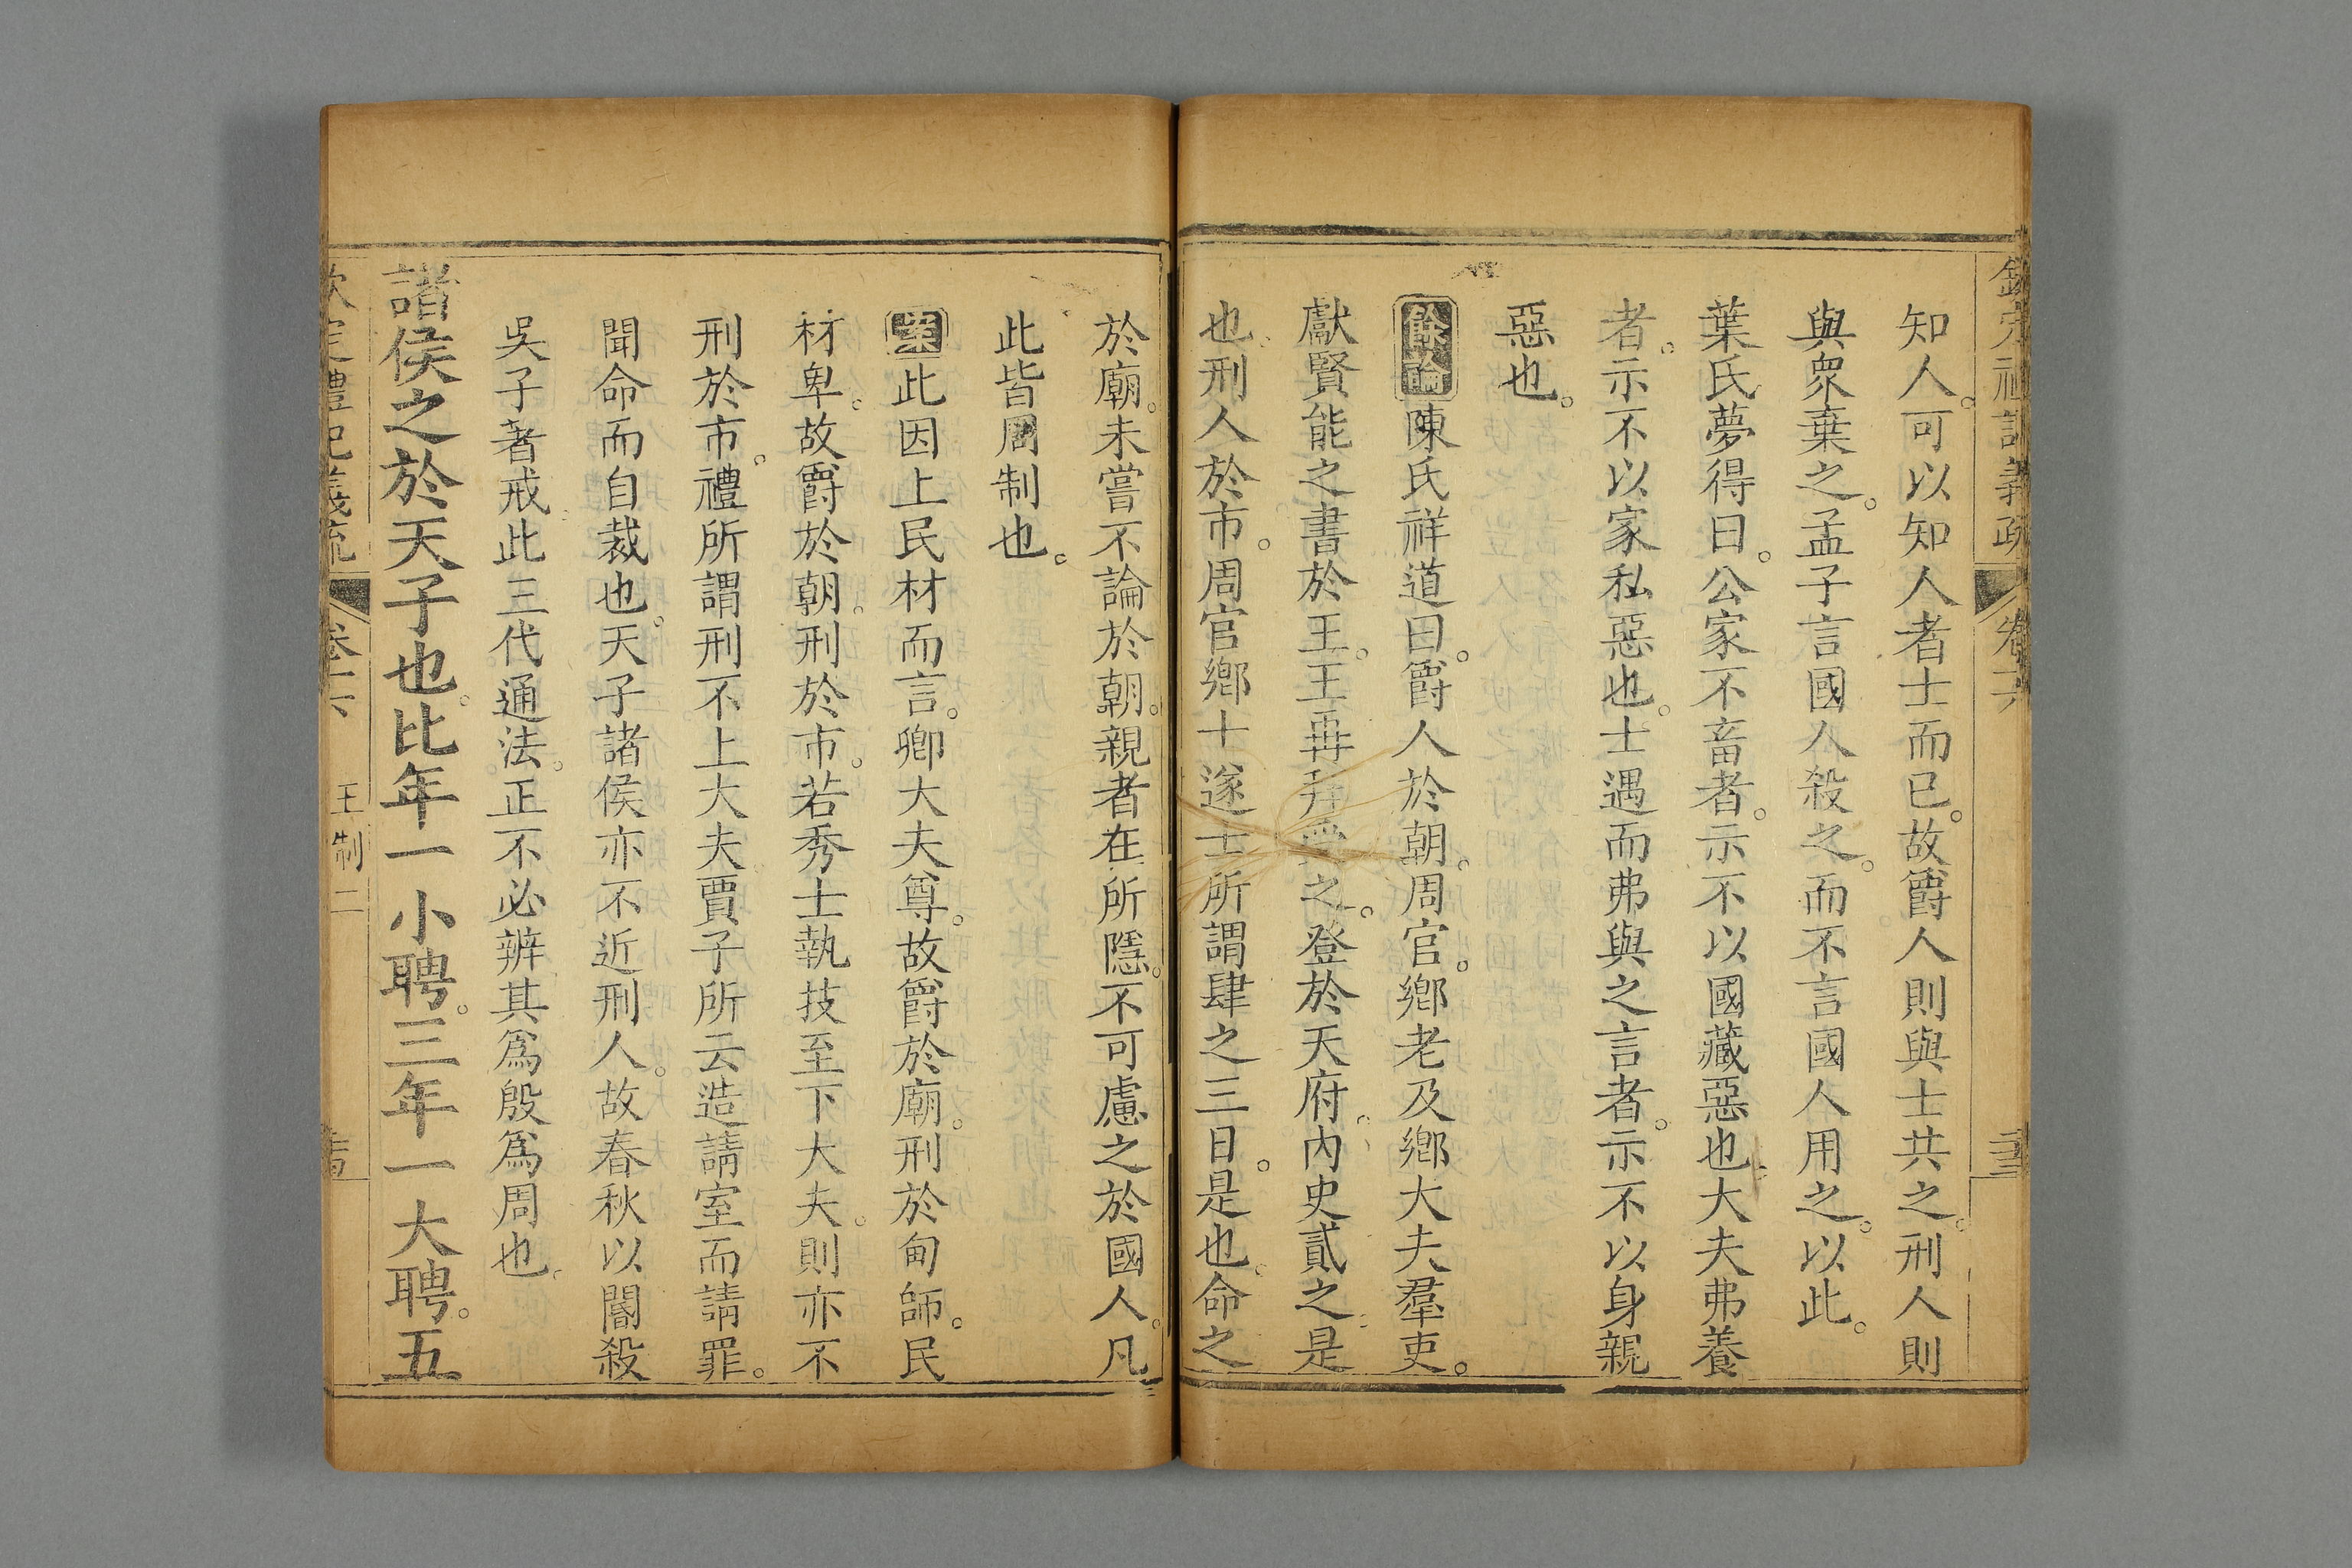 欽定禮記義疏 卷十六
知人。可以知人者士而已。故爵人則與士共之。刑人則
與衆棄之。孟子言國人殺之。而不言國人用之。以此。
葉氏夢得曰。公家不畜者。示不以國藏惡也。大夫弗養
者。示不以家私惡也。士遇而弗與之言者。示不以身親
惡也。
餘論陳氏祥道曰。爵人於朝。周官。鄉老及鄉大夫羣吏。
獻賢能之書於王。王再拜受之。登於天府。內史貳之是
也。刑人於市。周官鄉士遂士所謂肆之三日。是也。命之
於廟。未嘗不論於朝。親者在所隱。不可慮之於國人。凡
此皆周制也。
案此因上民材而言。卿大夫尊。故爵於廟。刑於甸師。民
材卑。故爵於朝。刑於市。若秀士執技至下大夫。則亦不
刑於市。禮所謂刑不上大夫賈子所云造請室而請罪。
聞命而自裁也。天子諸侯亦不近刑人。故春秋以閽殺
吳子著戒此三代通法。正不必辨其爲殷爲周也。
諸侯之於天子也。比年一小聘。三年一大聘。五
欽定禮記義疏 卷十六 王制二